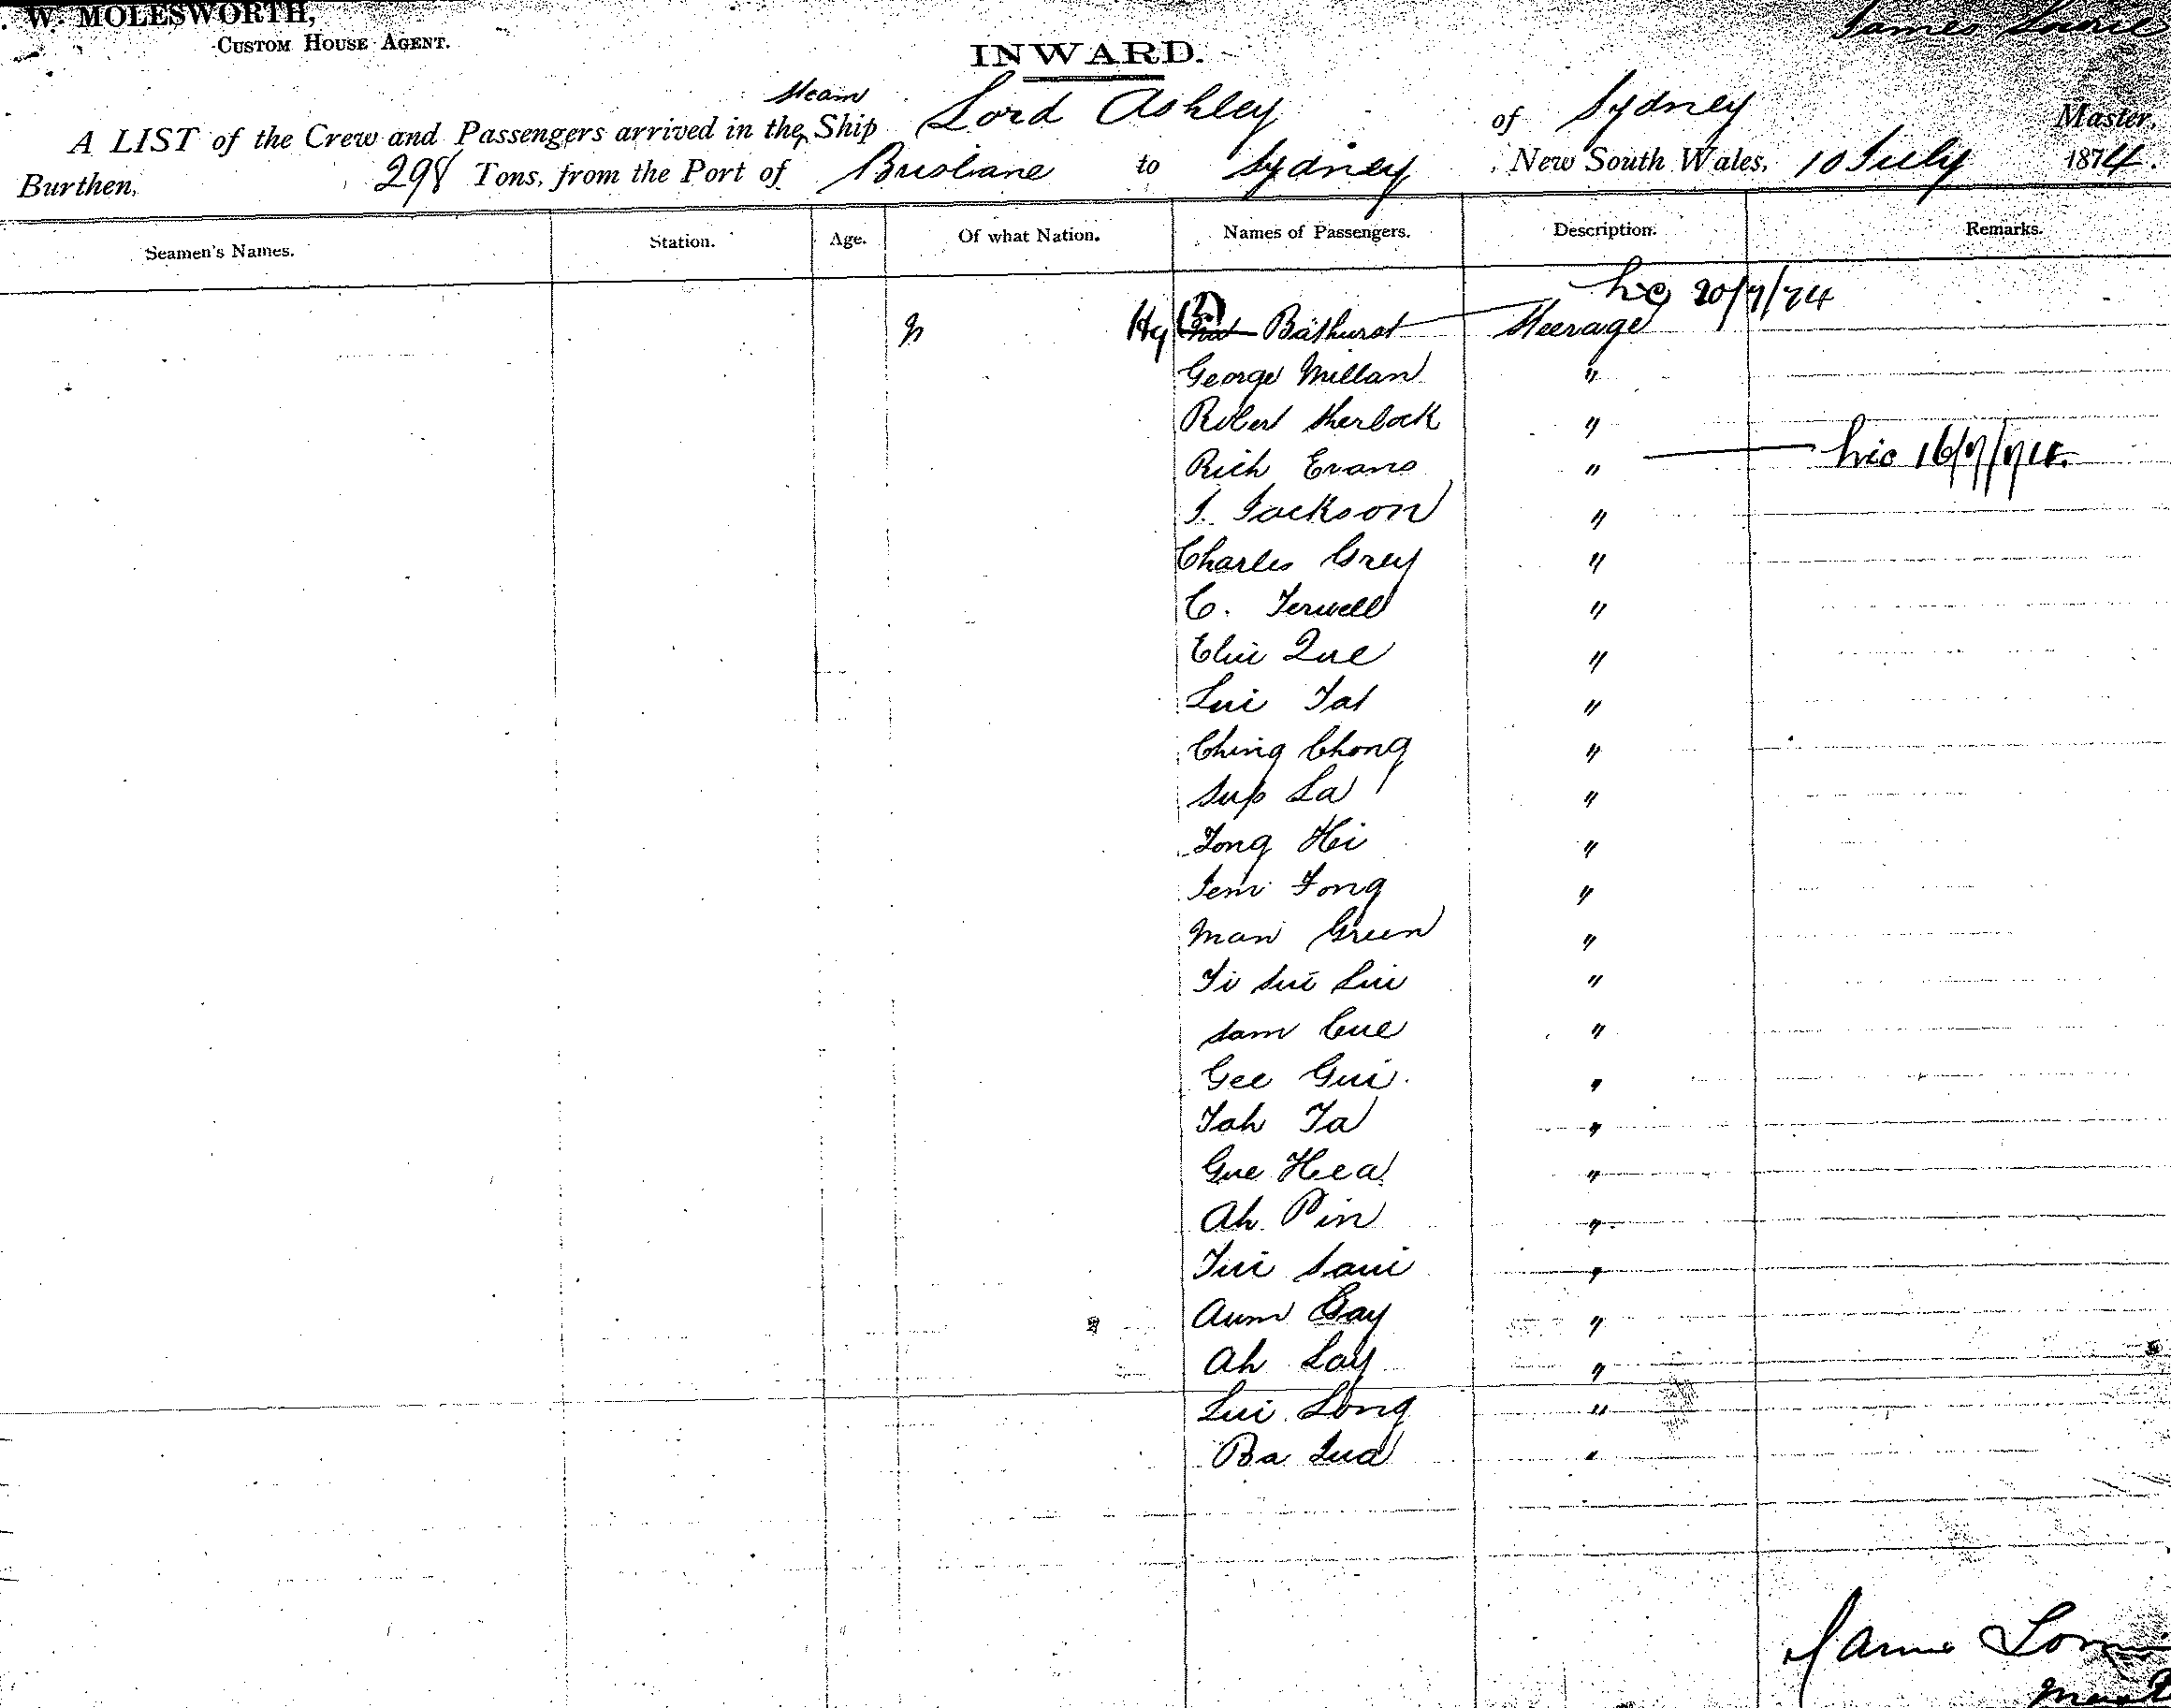 W. MOLESWORTH,
CUSTOM HOUSE AGENT.
INWARD.
James
A LIST of the Crew and Passengers arrived in the Steam Ship Lord Ashley of Sydney Master,
Burthen, 298 Tons, from the Port of Brisbane to Sydney New South Wales, 10 July 1874.
Seamen's Names. Station. Age. Of what Nation. Names of Passengers. Description. Remarks.
20/7/74
Hy Bathurst Steerage
George Millan "
Robert Sherlock "
Rich Evans " 16/7/74
J. Jackson "
Charles Grey "
C. "
Que "
Lui Tat "
Ching Chong "
Sup La "
Tong Hi "
Fong "
Man Green "
Sui Lui "
Sam Cue "
Gee Gui. "
Tah Ta "
Gue Hea "
Ah Pin "
"
Aum Gay "
Ah Lay "
Lui Long "
Ba "
James